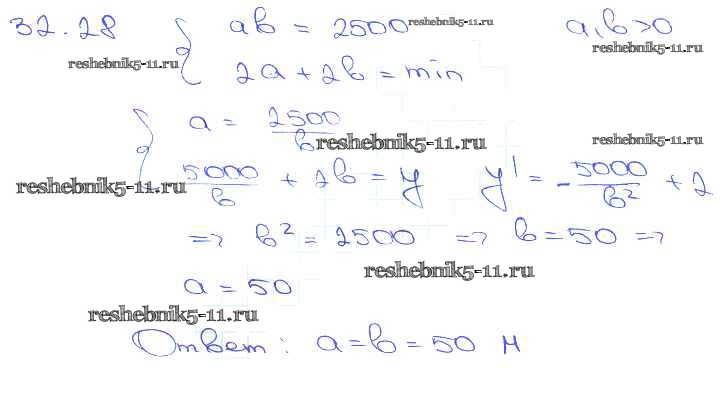 32.28 { ab = 2500 reshebnik5-11.ru a,b>0
reshebnik5-11.ru reshebnik5-11.ru
2a+2b=min
{ a = 2500/b reshebnik5-11.ru reshebnik5-11.ru
reshebnik5-11.ru 5000/b + 2b = y y' = -5000/b² + 2
=> b² = 2500 => b = 50 =>
reshebnik5-11.ru
a = 50
reshebnik5-11.ru
Ответ: a=b=50 м